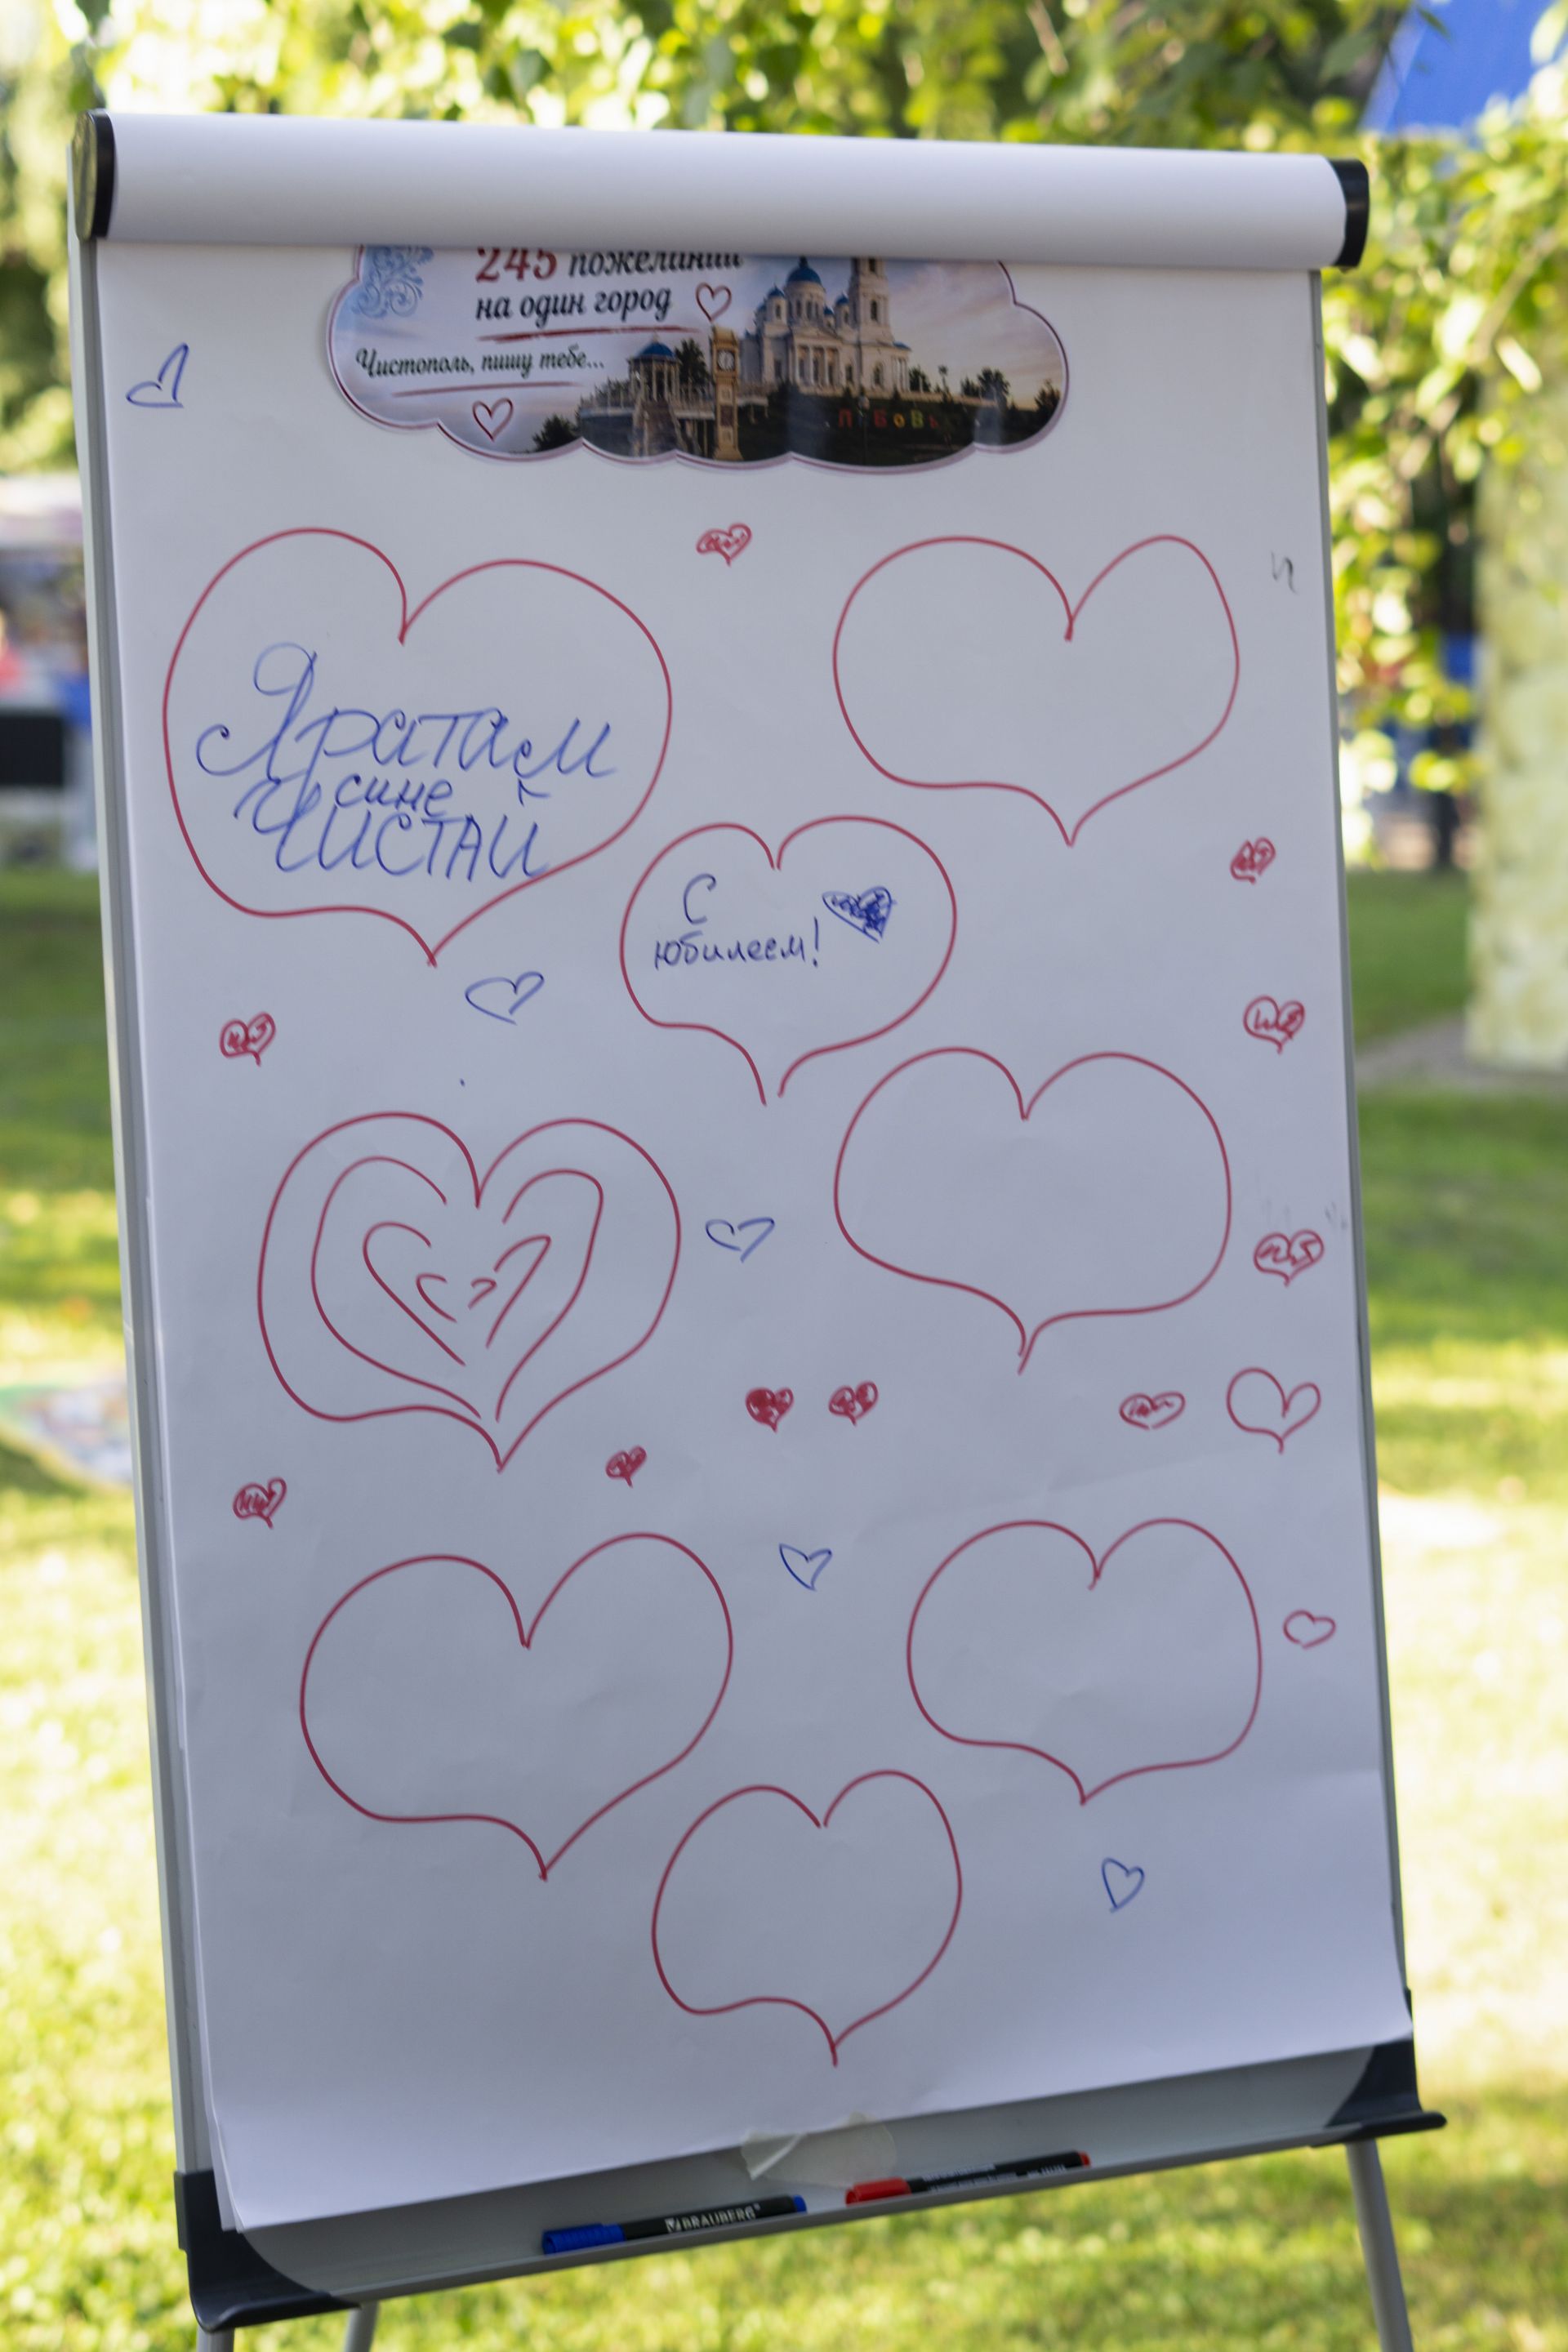 245 пожеланий
на один город
Чистополь, пишу тебе...
ЛЮБОВЬ
Яратам
сине
ЧИСТАЙ
С
юбилеем!
BRAUBERG